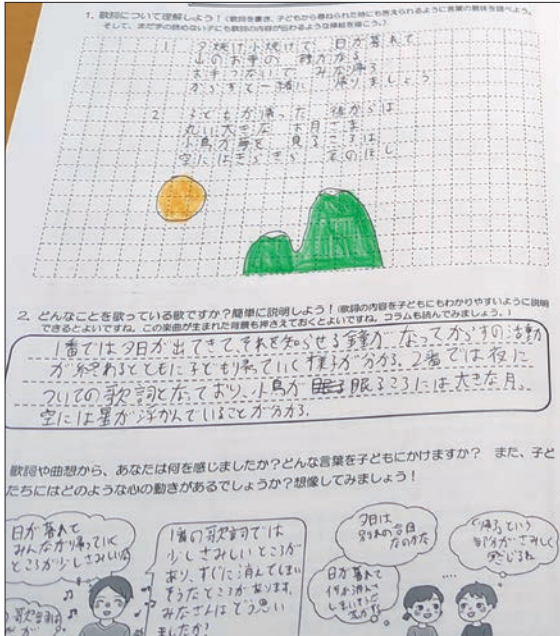 1. 歌詞について理解しよう！(歌詞を書き、子どもから尋ねられた時にも答えられるように言葉の意味を調べよう。
そして、まだ字の読めない子にも歌詞の内容が伝わるような挿絵を描こう。)
1 夕焼け小焼けで 日が暮れて
山のお寺の 鐘がなる
お手々つないで みな帰ろ
からすと一緒に 帰りましょう
2 子どもが帰った 後からは
丸い大きな お月さま
小鳥が夢を 見るころは
空にはきらきら 金のほし
2. どんなことを歌っている歌ですか？簡単に説明しよう！(歌詞の内容を子どもにもわかりやすいように説明
できるとよいですね。この楽曲が生まれた背景も押さえておくとよいですね。コラムも読んでみましょう。)
1番では夕日が出てきて、それを知らせる鐘がなってからすの活動
が終わるとともに子ども帰っていく様子が分かる。2番では夜に
ついての歌詞となっており、小鳥が眠るころには大きな月。
空には星が浮かんでいることが分かる。
歌詞や曲想から、あなたは何を感じましたか？どんな言葉を子どもにかけますか？ また、子ど
たちにはどのような心の動きがあるでしょうか？想像してみましょう！
日が暮れて
みんなが帰っていく
ところが少しさみしいな
歌詞は
1番の歌詞では
少しさみしいところが
あり、すぐに消えてしまい
そうなところがあります。
みなさんはどう思い
ましたか？
夕日は
お別れの合図
なのかな
日が暮れて
「帰る」という
部分がさみしく
感じるね